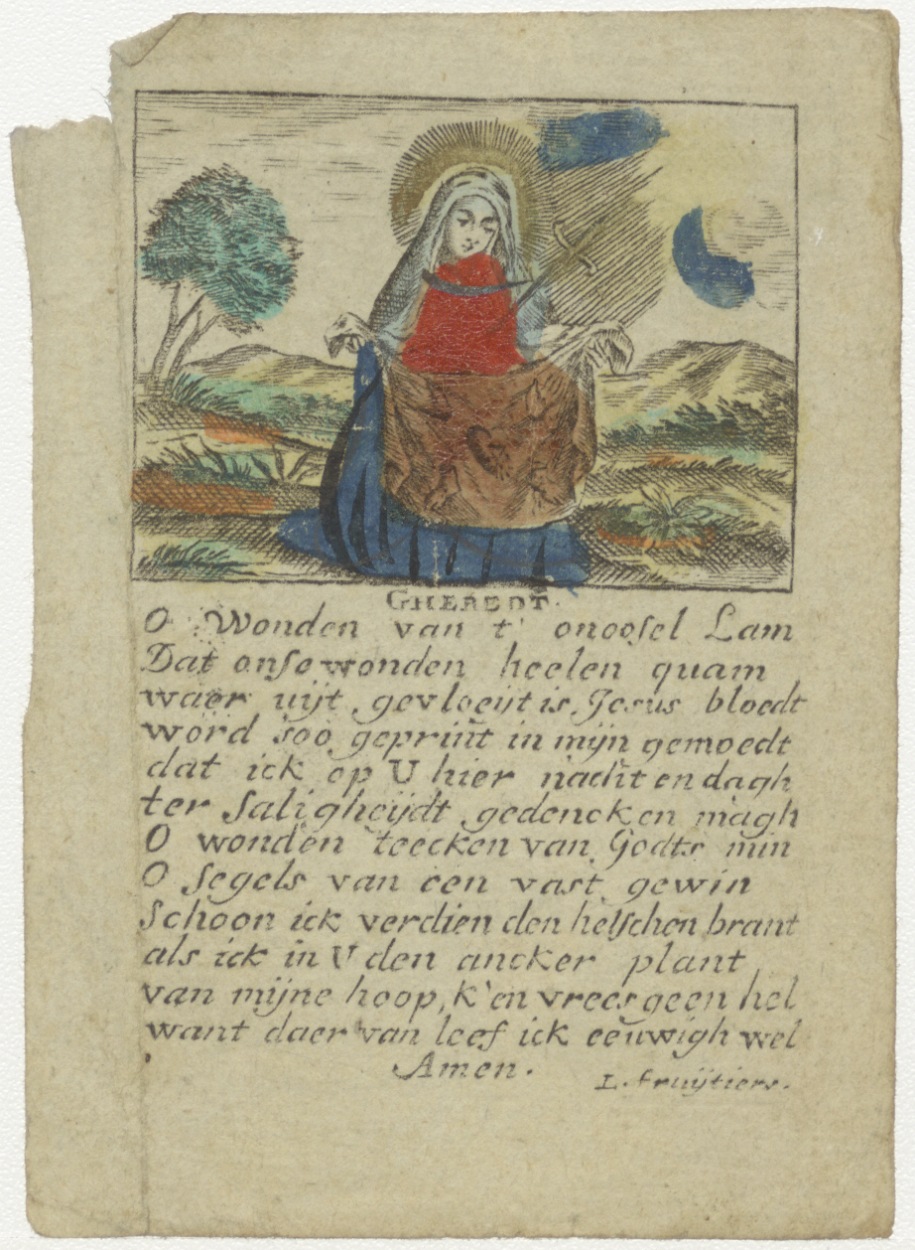 GHEBEDT.
O Wonden van t' onoosel Lam
Dat onse wonden heelen quam
waer uijt gevloeijt is Jesus bloedt
word soo geprint in mijn gemoedt
dat ick op U hier nacht en dagh
ter saligheijdt gedencken magh
O wonden teecken van Godts min
O segels van een vast gewin
schoon ick verdien den helschen brant
als ick in U den ancker plant
van mijne hoop, k'en vrees geen hel
want daer van leef ick eeuwigh wel
Amen.
L. fruijtiers.